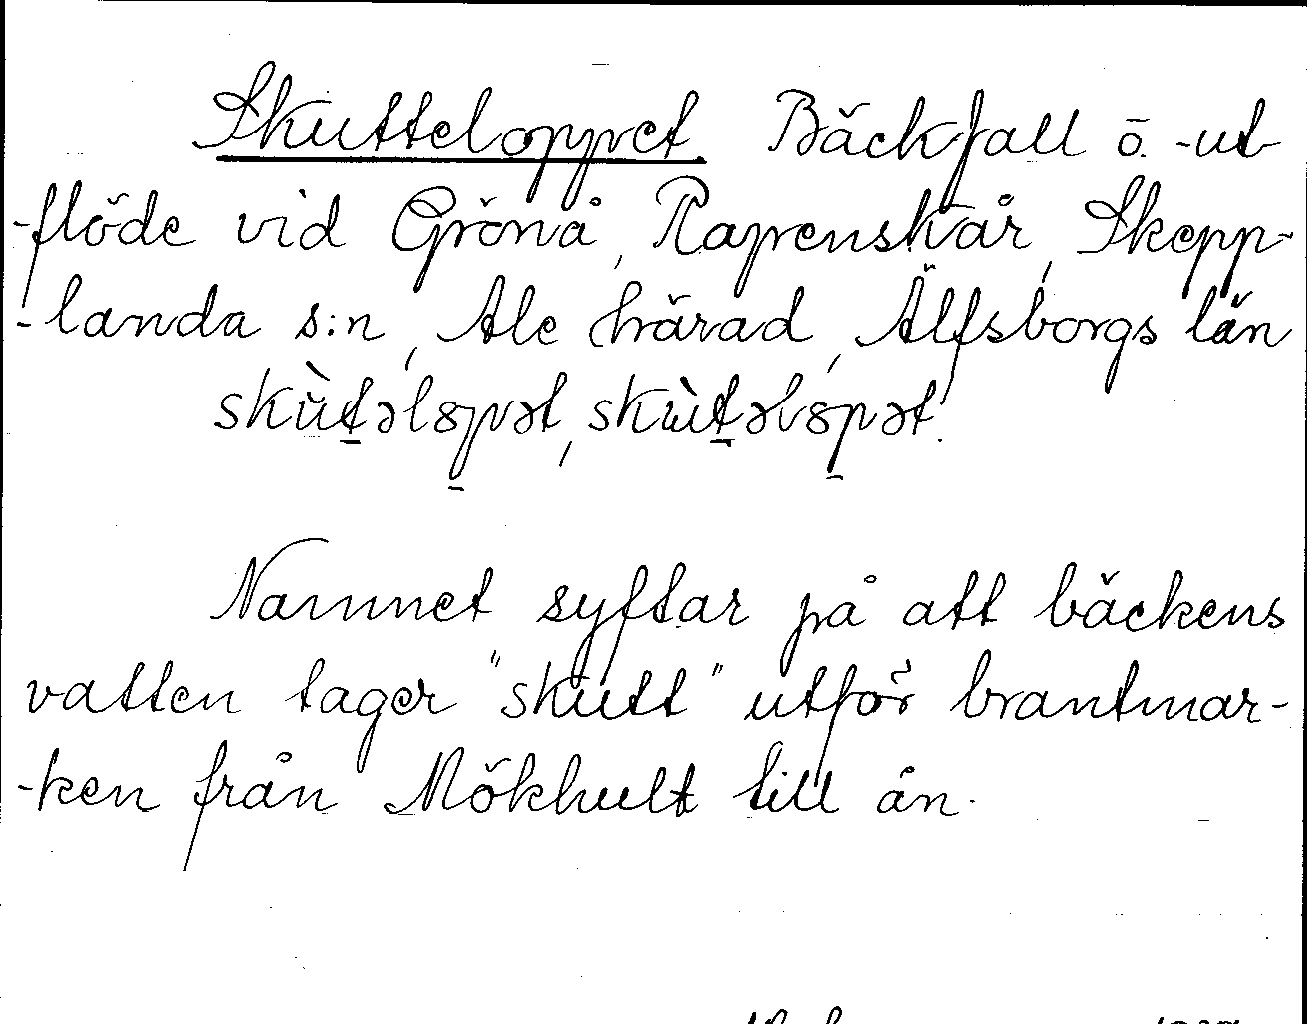 Skutteloppet Bäckfall o. -ut-
-flöde vid Grönå, Rapenskår, Skepp-
-landa s:n, Ale härad, Älfsborgs län
skùt̠əlo̠pət, skùt̠əlo̠pət.
Namnet syftar på att bäckens
vatten tager "skutt" utför brantmar-
-ken från Mökhult till ån.